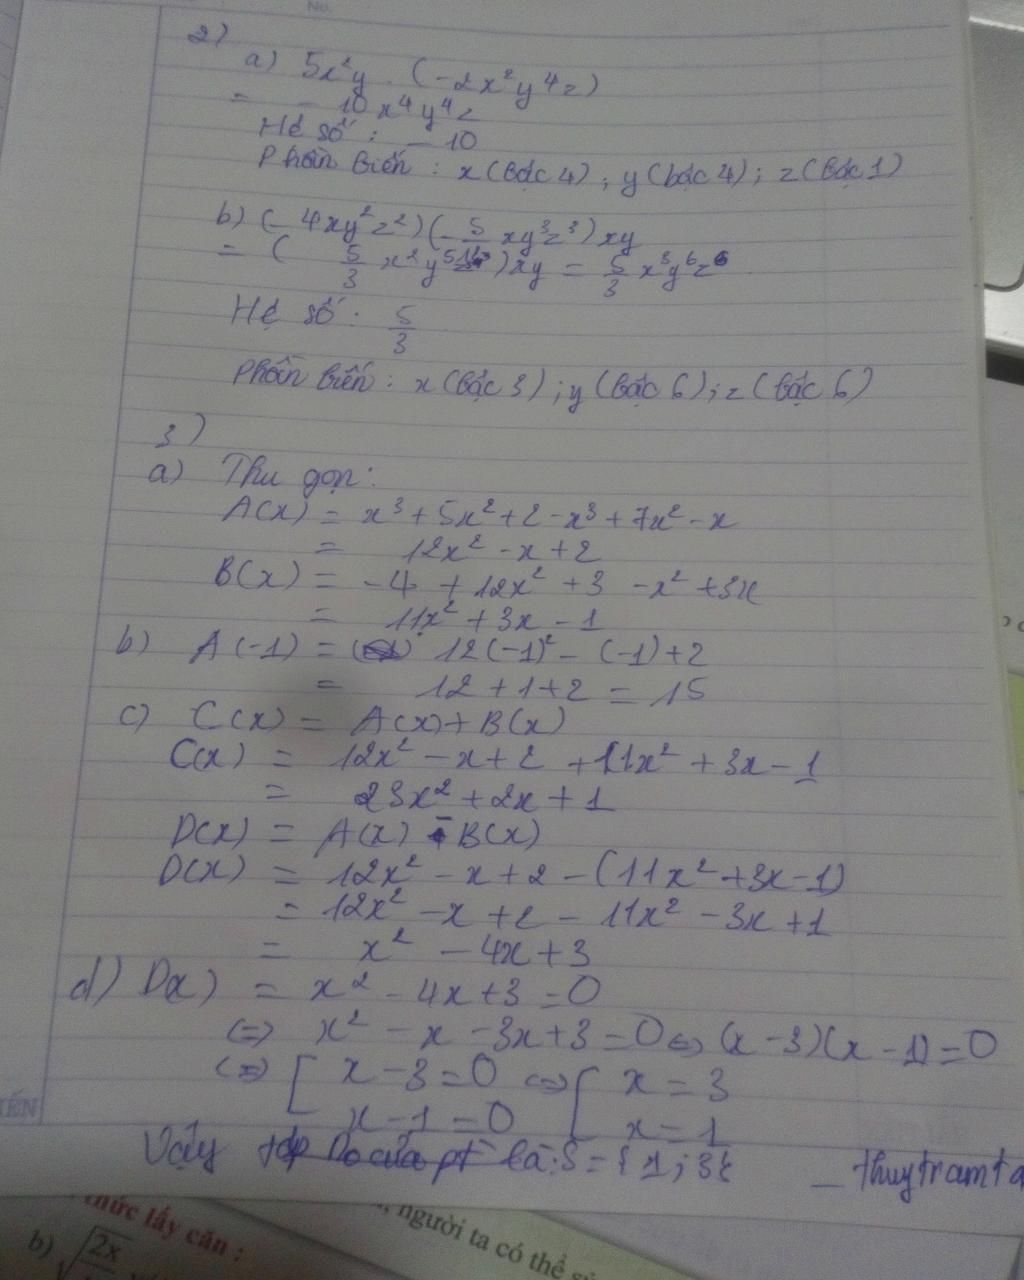 No.
2)
a) 5x²y . (-2x²y⁴z)
= - 10 x⁴y⁴z
Hệ số : - 10
Phần biến : x (bậc 4) ; y (bậc 4) ; z (bậc 1)
b) (- 4xy²z²)(- 5/12 xy³z³) xy
= ( 5/3 x²y⁵ ) xy = 5/3 x³y⁶z⁶
Hệ số : 5/3
Phần biến : x (bậc 3) ; y (bậc 6) ; z (bậc 6)
3)
a) Thu gọn :
A(x) = x³ + 5x² + 2 - x³ + 7x² - x
= 12x² - x + 2
B(x) = -4 + 12x² + 3 - x² + 3x
= 11x² + 3x - 1
b) A(-1) = 12(-1)² - (-1) + 2
= 12 + 1 + 2 = 15
c) C(x) = A(x) + B(x)
C(x) = 12x² - x + 2 + 11x² + 3x - 1
= 23x² + 2x + 1
D(x) = A(x) - B(x)
D(x) = 12x² - x + 2 - (11x² + 3x - 1)
= 12x² - x + 2 - 11x² - 3x + 1
= x² - 4x + 3
d) D(x) = x² - 4x + 3 = 0
<=> x² - x - 3x + 3 = 0 <=> (x - 3)(x - 1) = 0
<=> [ x - 3 = 0 <=> [ x = 3
x - 1 = 0 x = 1
Vậy của pt là : S = { 1 ; 3 } _ thuytramta
YẾN
thức lấy căn :
, người ta có thể
b) √2x